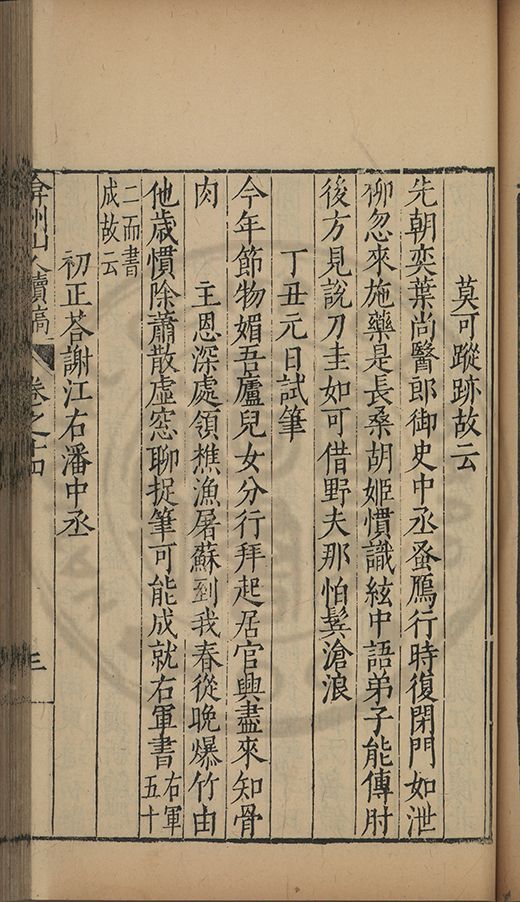 莫可蹤跡故云
先朝奕葉尚醫郎御史中丞蚤鴈行時復閉門如泄
柳忽來施藥是長桑胡姬慣識絃中語弟子能傳肘
後方見說刀圭如可借野夫那怕鬂滄浪
丁丑元日試筆
今年節物媚吾廬兒女分行拜起居官興盡來知骨
肉　主恩深處領樵漁屠蘇到我春從晚爆竹由
他歲慣除蕭散虛窓聊捉筆可能成就右軍書右軍五十
二而書成故云
初正荅謝江右潘中丞
弇州山人續稿　卷之十四　三